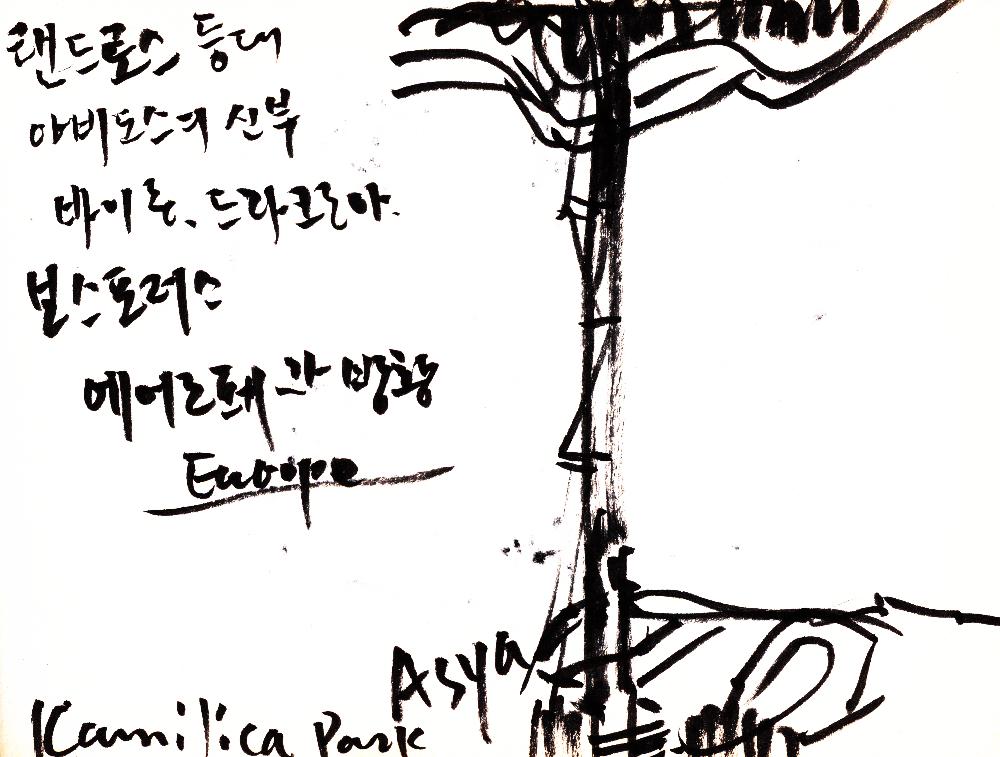 랜드로스 등대
아비도스의 신부
바이론, 드라크로아.
보스포러스
에어르퐤과 방황
Europe
Asya
Kamilica Park